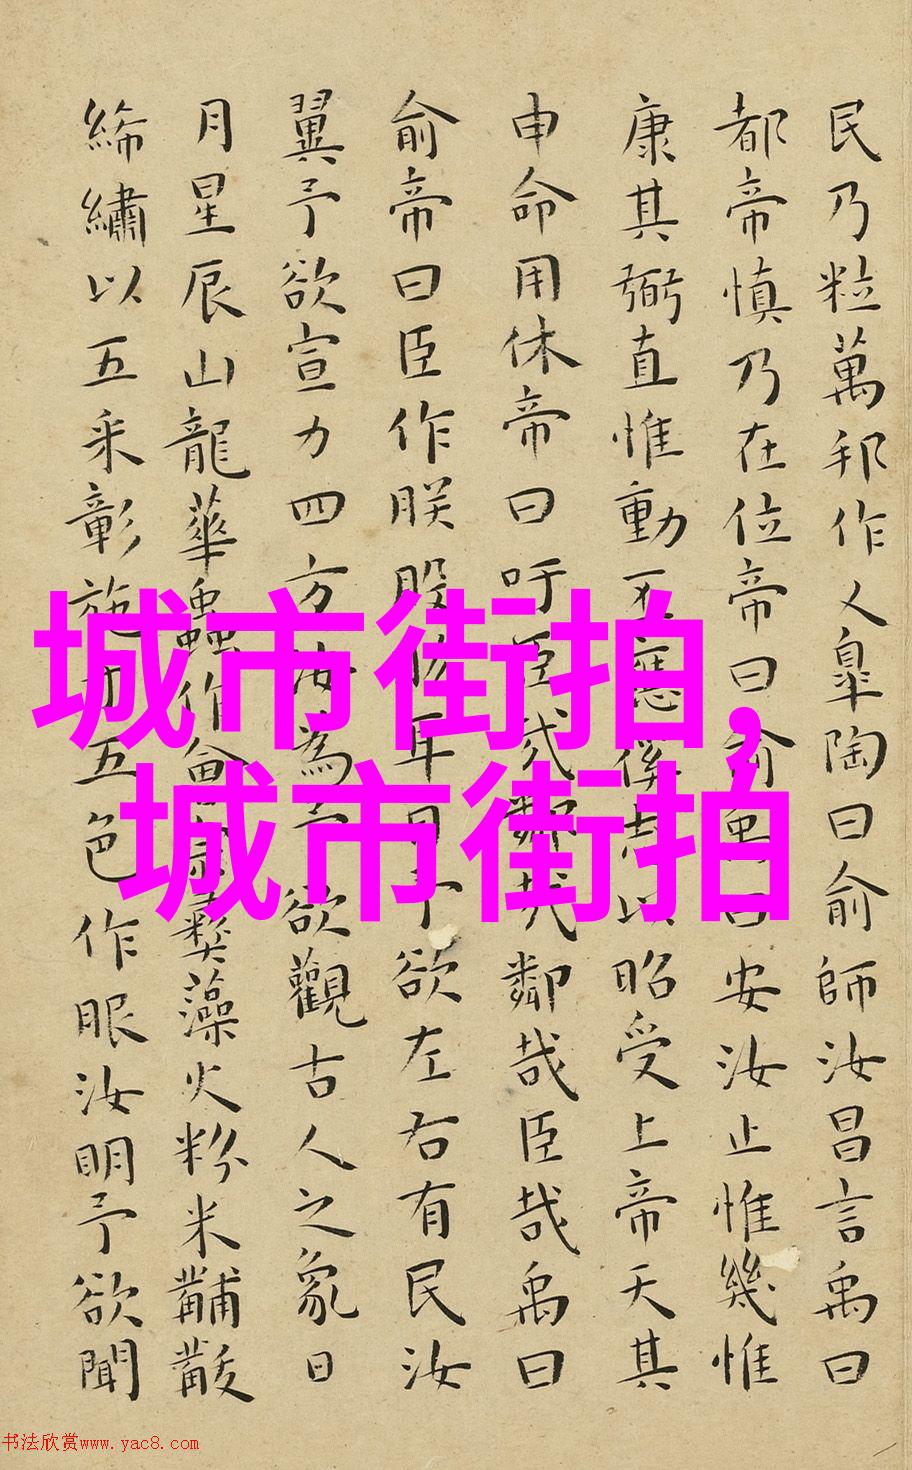 民乃粒萬邦作乂皐陶曰俞師汝昌言禹曰
都帝慎乃在位帝曰俞禹曰安汝止惟幾惟
康其弼直惟動丕應徯志以昭受上帝天其
申命用休帝曰吁臣哉鄰哉鄰哉臣哉禹曰
俞帝曰臣作朕股肱耳目予欲左右有民汝
翼予欲宣力四方汝為予欲觀古人之象日
月星辰山龍華蟲作會宗彝藻火粉米黼黻
絺繡以五采彰施于五色作服汝明予欲聞
城市街拍,
城市街拍
书法欣赏www.yac8.com